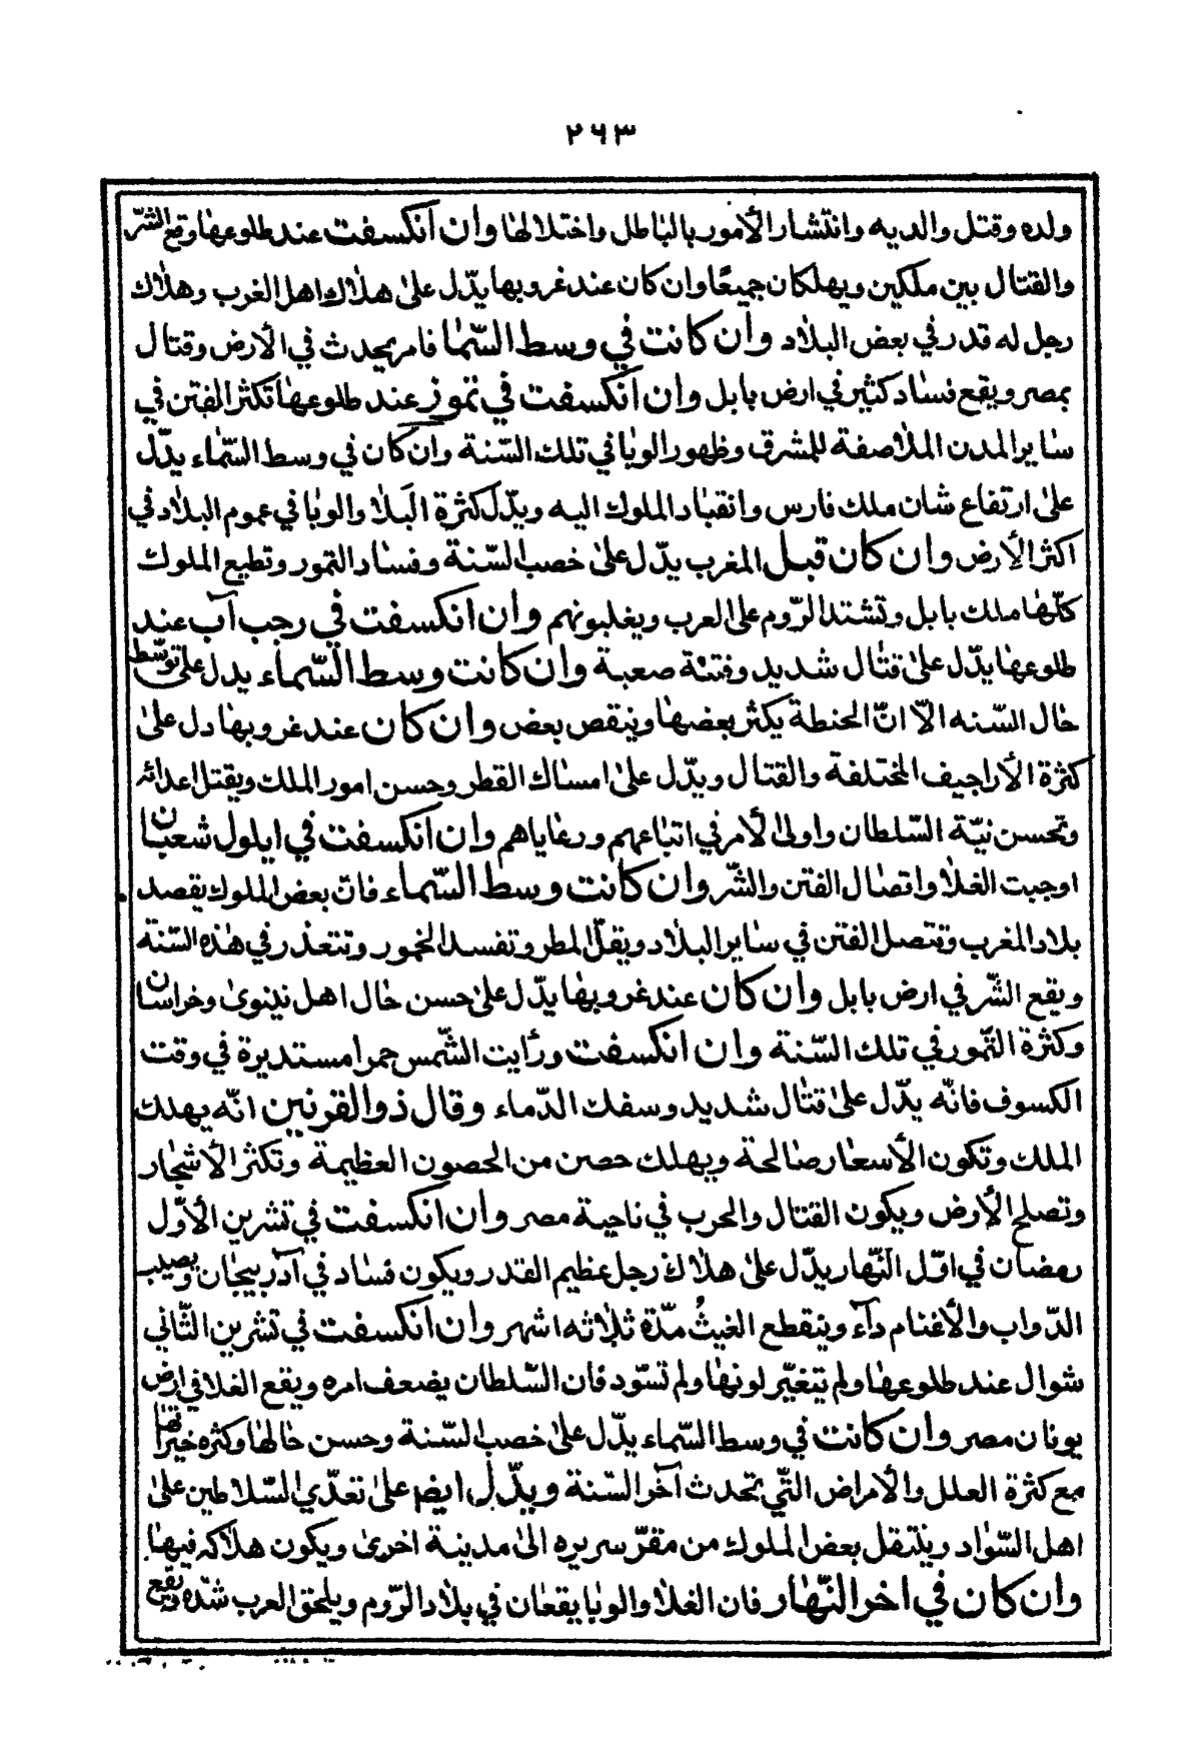 ٢٦٣
ولده وقتل والديه وانتشار الأمور بالباطل واختلالها وان انكسفت عند طلوعها وقع الشرّ
والقتال بين ملكين ويهلكان جميعًا وان كان عند غروبها يدّل على هلاك اهل الغرب وهلاك
رجل له قدر في بعض البلاد وان كانت في وسط السّما فامر يحدث في الأرض وقتال
بمصر ويقع فساد كثير في ارض بابل وان انكسفت في تموز عند طلوعها تكثر الفتن في
ساير المدن الملاصقة للمشرق وظهور الوبا في تلك السّنة وان كان في وسط السّماء يدّل
على ارتفاع شان ملك فارس وانقياد الملوك اليه ويدّل كثرة البلا والوبا في عموم البلاد في
اكثر الأرض وان كان قبل المغرب يدّل على خصب السّنة وفساد التمور وتطيع الملوك
كلّها ملك بابل وتشتد الرّوم على العرب ويغلبونهم وان انكسفت في رجب آب عند
طلوعها يدّل على قتال شديد وفتنة صعبة وان كانت وسط السّماء يدل على توسّط
حال السّنه الاّ انّ الحنطة يكثر بعضها وينقص بعض وان كان عند غروبها دل على
كثرة الأراجيف المختلفة والقتال ويدّل على امساك القطر وحسن امور الملك ويقتل اعدائه
وتحسن نيّة السّلطان واولى الأمر في اتباعهم ورعاياهم وان انكسفت في ايلول شعبان
اوجبت الغلا واتصال الفتن والشّر وان كانت وسط السّماء فان بعض الملوك يقصد
بلاد المغرب وتتصل الفتن في ساير البلاد ويقلّ المطر وتفسد الخمور وتتعذر في هذه السّنة
ويقع الشّر في ارض بابل وان كان عند غروبها يدّل على حسن حال اهل نينوى وخراسان
وكثرة التّمور في تلك السّنة وان انكسفت ورأيت الشّمس حمرا مستديرة في وقت
الكسوف فانّه يدّل على قتال شديد وسفك الدّماء وقال ذو القرنين انّه يهلك
الملك وتكون الأسعار صالحة ويهلك حصن من الحصون العظيمة وتكثر الأشجار
وتصلح الأرض ويكون القتال والحرب في ناحية مصر وان انكسفت في تشرين الأوّل
رمضان في اوّل النّهار يدّل على هلاك رجل عظيم القدر ويكون فساد في آذربيجان ويصيب
الدّواب والأغنام دآء وينقطع الغيثُ مدّة ثلاثه اشهر وان انكسفت في تشرين الثّاني
شوال عند طلوعها ولم يتغيّر لونها ولم تسّود فان السّلطان يضعف امره ويقع الغلا في ارض
يونان مصر وان كانت في وسط السّماء يدّل على خصب السّنة وحسن حالها وكثره خيراتها
مع كثرة العلل والأمراض التّي تحدث آخر السّنة ويدّل ايضم على تعدّي السّلاطين على
اهل السّواد وينتقل بعض الملوك من مقرّ سريره الى مدينة اخرى ويكون هلاكه فيها
وان كان في اخر النّهار فان الغلا والوبا يقعان في بلاد الرّوم ويلحق العرب شدّه ويقع